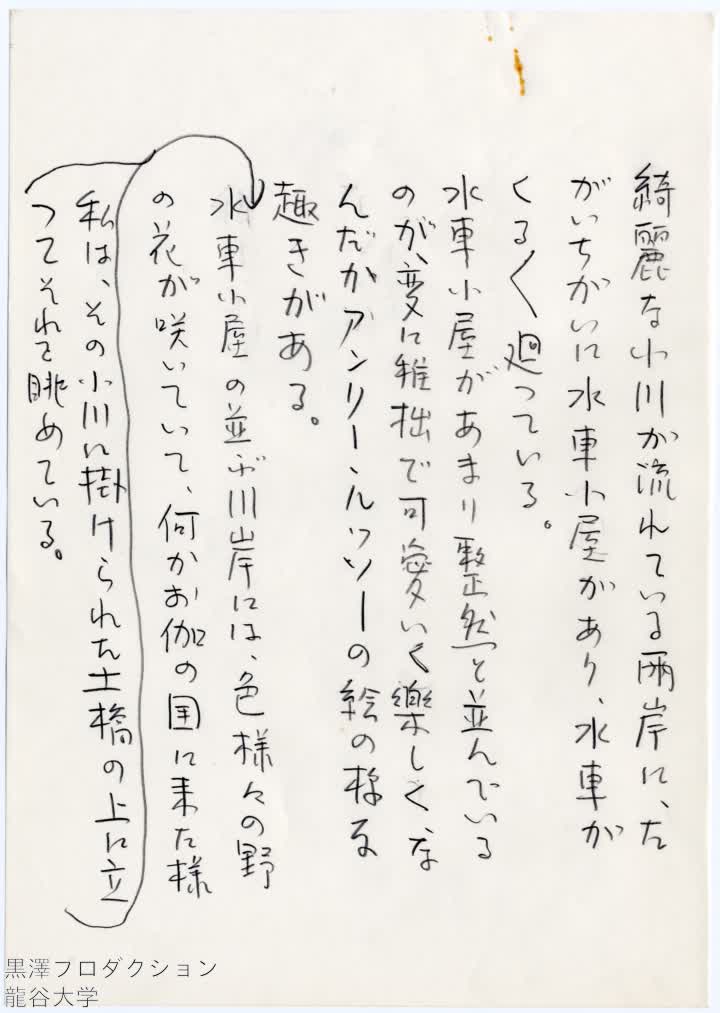 綺麗な小川が流れている両岸に、た
がいちがいに水車小屋があり、水車が
くるく廻っている。
水車小屋があまり整然と並んでいる
のが、変に稚拙で可愛いく樂しく、な
んだかアンリー・ルッソーの絵の様な
趣きがある。
水車小屋の並ぶ川岸には、色様々の野
の花が咲いていて、何かお伽の国に来た様
私は、その小川に掛けられた土橋の上に立
つてそれを眺めている。
黒澤プロダクション
龍谷大学